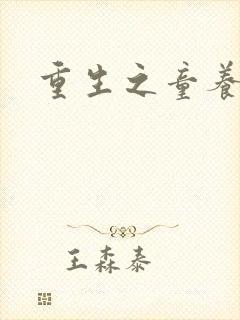 重生之童养
王森泰